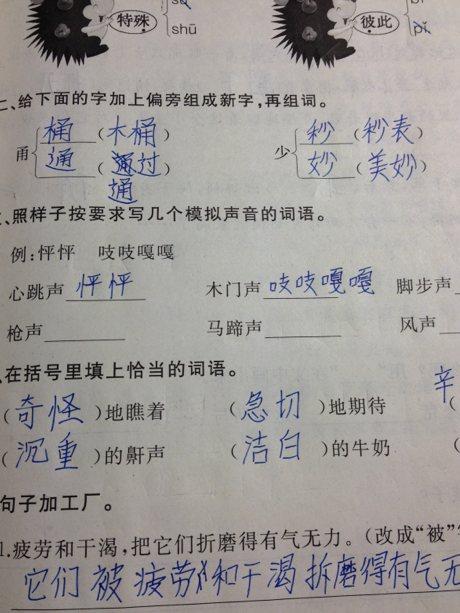 特殊 shū 彼此
二、给下面的字加上偏旁组成新字,再组词。
甬 桶 (木桶) 少 秒 (秒表)
通 (通过) 妙 (美妙)
通
、照样子按要求写几个模拟声音的词语。
例:怦怦 吱吱嘎嘎
心跳声 怦怦 木门声 吱吱嘎嘎 脚步声
枪声 马蹄声 风声
、在括号里填上恰当的词语。
(奇怪)地瞧着 (急切)地期待 (辛
(沉重)的鼾声 (洁白)的牛奶 (
句子加工厂。
1.疲劳和干渴,把它们折磨得有气无力。(改成“被”字
它们被疲劳和干渴折磨得有气无